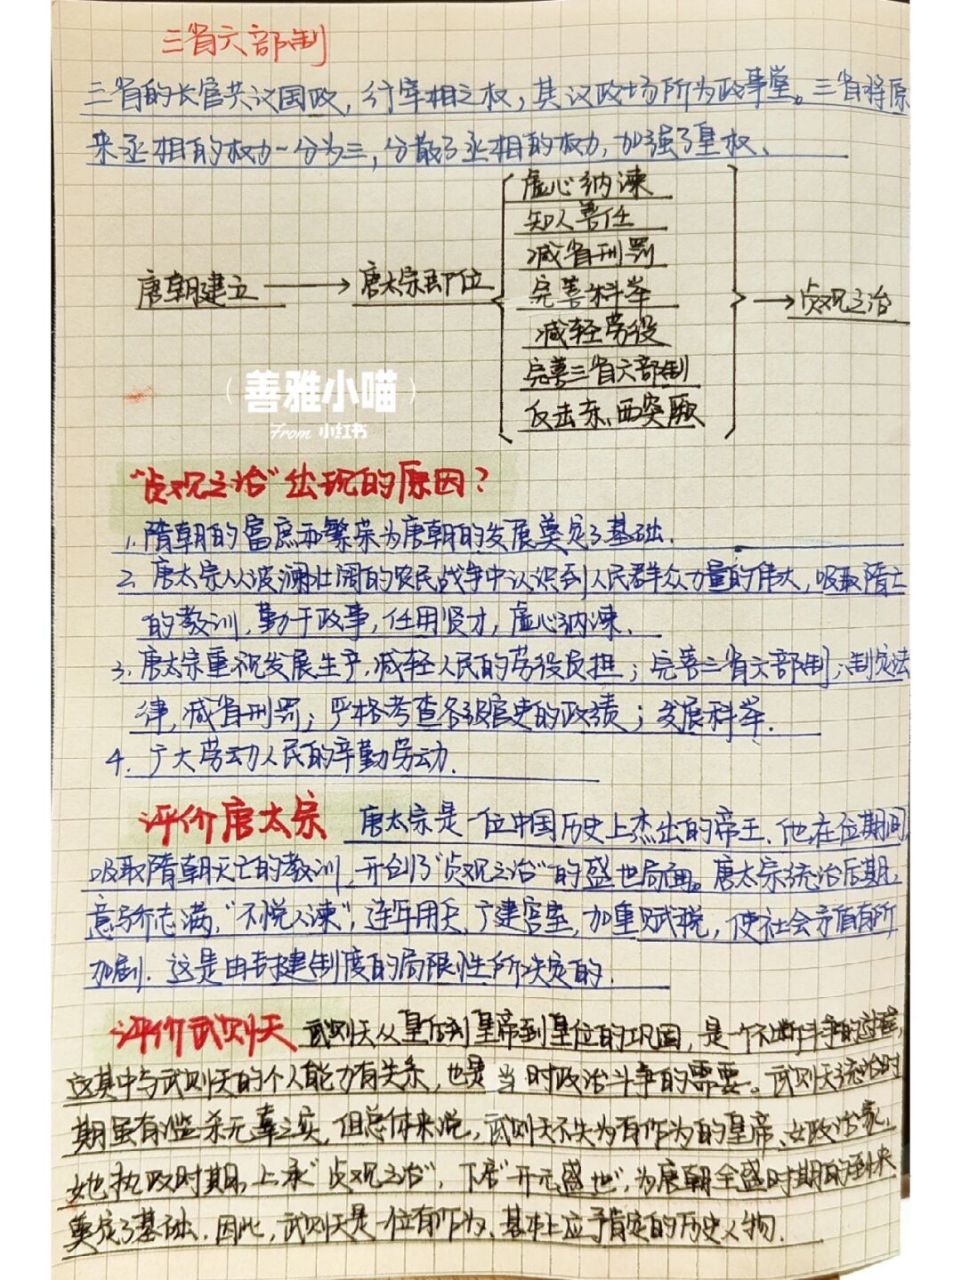 三省六部制
三省的长官共议国政，行宰相之权，其议政场所为政事堂。三省将原
来丞相的权力一分为三，分散了丞相的权力，加强了皇权。
虚心纳谏
知人善任
减省刑罚
唐朝建立 → 唐太宗即位 完善科举 → 贞观之治
减轻劳役
完善三省六部制
反击东、西突厥
（善雅小喵）
From 小红书
“贞观之治”出现的原因？
1. 隋朝的富庶和繁荣为唐朝的发展奠定了基础.
2. 唐太宗从波澜壮阔的农民战争中认识到人民群众力量的伟大，吸取隋亡
的教训，勤于政事，任用贤才，虚心纳谏.
3. 唐太宗重视发展生产，减轻人民的劳役负担；完善三省六部制；制定法
律，减省刑罚；严格考查各级官吏的政绩；发展科举.
4. 广大劳动人民的辛勤劳动.
评价唐太宗 唐太宗是一位中国历史上杰出的帝王.他在位期间
吸取隋朝灭亡的教训，开创了“贞观之治”的盛世局面。唐太宗统治后期，
意骄志满，“不悦人谏”，连年用兵，广建宫室，加重赋税，使社会矛盾有所
加剧.这是由封建制度的局限性所决定的.
评价武则天 武则天从皇后到皇帝到皇位的巩固，是一个不断斗争的过程，
这其中与武则天的个人能力有关系，也是当时政治斗争的需要。武则天统治时
期虽有滥杀无辜之实，但总体来说，武则天不失为有作为的皇帝、女政治家，
她执政时期，上承“贞观之治”，下启“开元盛世”，为唐朝全盛时期的到来
奠定了基础.因此，武则天是一位有作为、基本上应予肯定的历史人物.